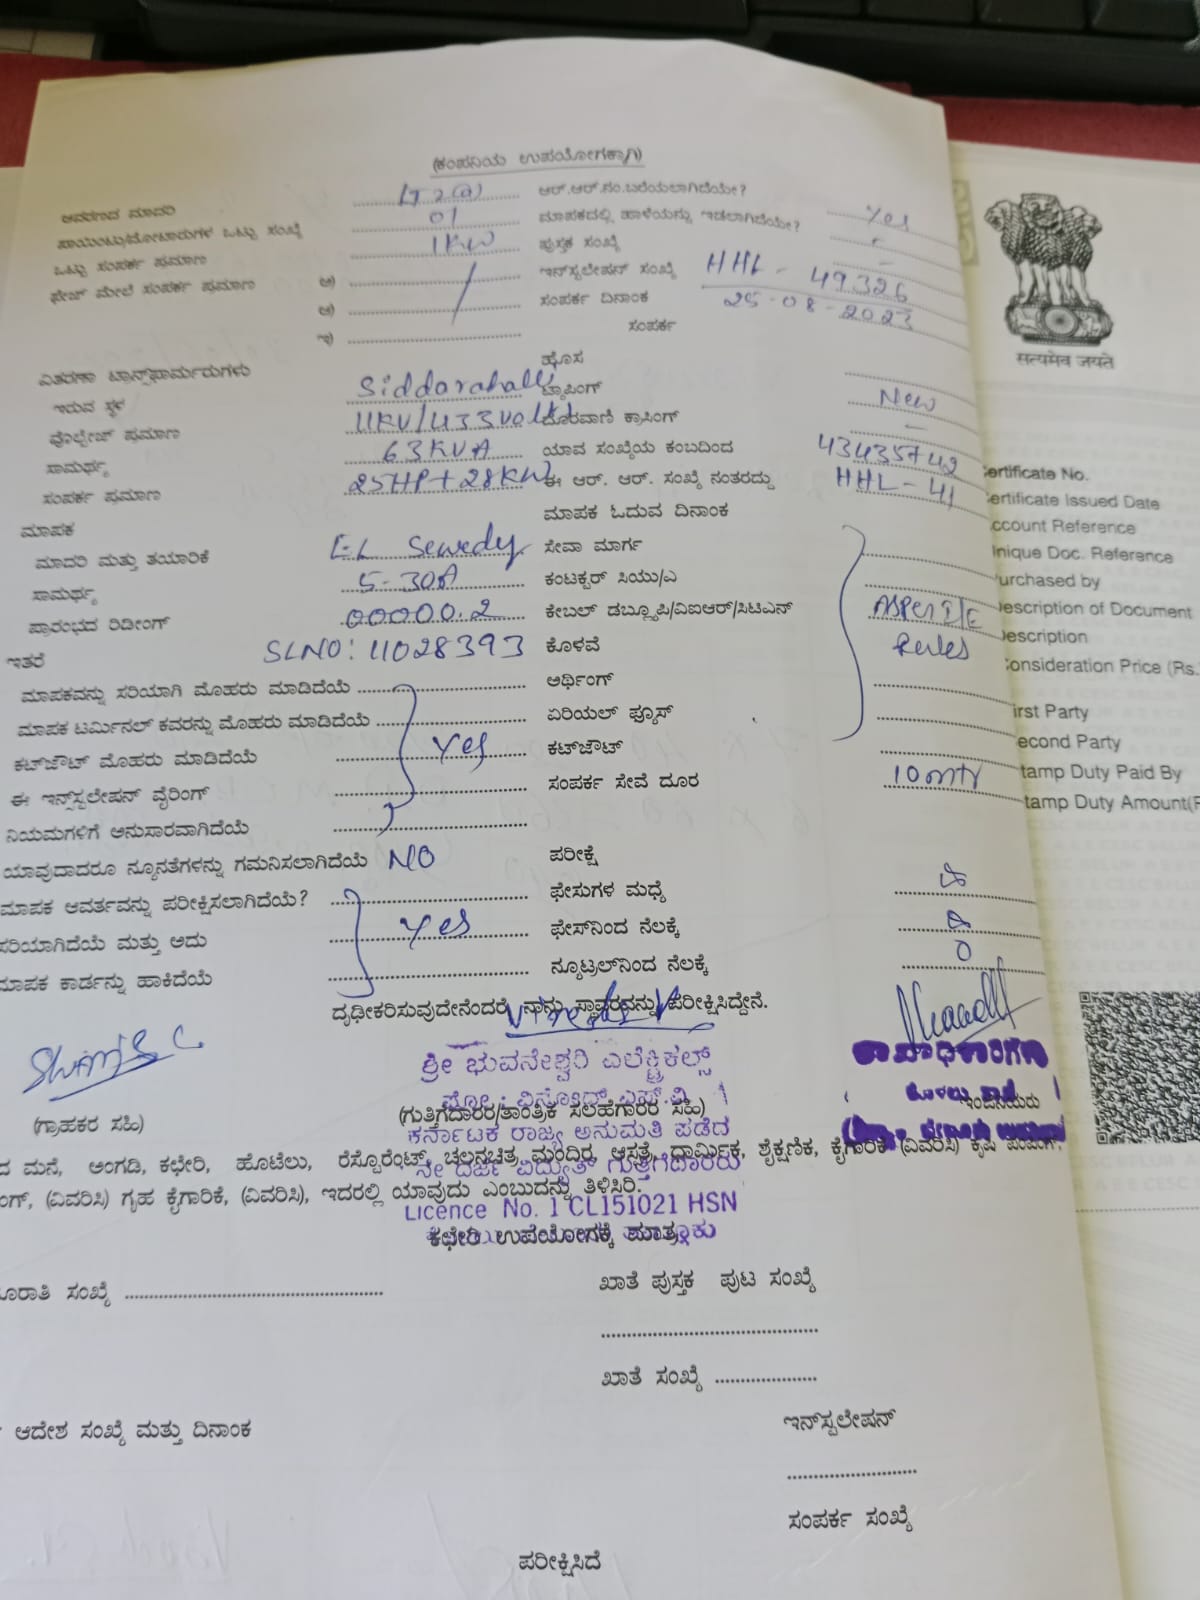 (ಕಂಪನಿಯ ಉಪಯೋಗಕ್ಕಾಗಿ)
ಆವರಣದ ಮಾದರಿ LT 2(a) ಆರ್.ಆರ್.ನಂ.ಬರೆಯಲಾಗಿದೆಯೇ? Yes
ಪಾಯಿಂಟು/ಮೋಟಾರುಗಳ ಒಟ್ಟು ಸಂಖ್ಯೆ 01 ಮಾಪಕದಲ್ಲಿ ಹಾಳೆಯನ್ನು ಇಡಲಾಗಿದೆಯೇ? -
ಒಟ್ಟು ಸಂಪರ್ಕ ಪ್ರಮಾಣ 1KW ಪುಸ್ತಕ ಸಂಖ್ಯೆ -
ಫೇಜ್ ಮೇಲೆ ಸಂಪರ್ಕ ಪ್ರಮಾಣ ಅ) ಇನ್‌ಸ್ಟಲೇಷನ್ ಸಂಖ್ಯೆ HHL - 49326
ಆ) ಸಂಪರ್ಕ ದಿನಾಂಕ 25-08-2023
ಇ) ಸಂಪರ್ಕ
ವಿತರಣಾ ಟ್ರಾನ್ಸ್‌ಫಾರ್ಮರುಗಳು ಹೊಸ
ಇರುವ ಸ್ಥಳ Siddarahalli ಟ್ಯಾಪಿಂಗ್ New
ವೊಲ್ಟೇಜ್ ಪ್ರಮಾಣ 11KV/433Volt ದೂರವಾಣಿ ಕ್ರಾಸಿಂಗ್ -
ಸಾಮರ್ಥ್ಯ 63KVA ಯಾವ ಸಂಖ್ಯೆಯ ಕಂಬದಿಂದ
ಸಂಪರ್ಕ ಪ್ರಮಾಣ 25HP+28KW ಈ ಆರ್. ಆರ್. ಸಂಖ್ಯೆ ನಂತರದ್ದು HHL-41
ಮಾಪಕ ಮಾಪಕ ಓದುವ ದಿನಾಂಕ
ಮಾದರಿ ಮತ್ತು ತಯಾರಿಕೆ EL Sewedy ಸೇವಾ ಮಾರ್ಗ
ಸಾಮರ್ಥ್ಯ 5-30A ಕಂಟಕ್ಟರ್ ಸಿಯು/ಎ
ಪ್ರಾರಂಭದ ರಿಡೀಂಗ್ 00000.2 ಕೇಬಲ್ ಡಬ್ಲ್ಯೂಪಿ/ವಿಐಆರ್/ಸಿಟಿಎನ್ ASPer I/E
ಇತರೆ SLNO: 11028393 ಕೊಳವೆ Rules
ಮಾಪಕವನ್ನು ಸರಿಯಾಗಿ ಮೊಹರು ಮಾಡಿದೆಯೆ ಅರ್ಥಿಂಗ್
ಮಾಪಕ ಟರ್ಮಿನಲ್ ಕವರನ್ನು ಮೊಹರು ಮಾಡಿದೆಯೆ ಏರಿಯಲ್ ಫ್ಯೂಸ್
ಕಟ್‌ಔಟ್ ಮೊಹರು ಮಾಡಿದೆಯೆ Yes ಕಟ್‌ಔಟ್
ಈ ಇನ್ಸ್‌ಸ್ಟಲೇಷನ್ ವೈರಿಂಗ್ ಸಂಪರ್ಕ ಸೇವೆ ದೂರ 10mty
ನಿಯಮಗಳಿಗೆ ಅನುಸಾರವಾಗಿದೆಯೆ
ಯಾವುದಾದರೂ ನ್ಯೂನತೆಗಳನ್ನು ಗಮನಿಸಲಾಗಿದೆಯೆ NO ಪರೀಕ್ಷೆ
ಮಾಪಕ ಆವರ್ತವನ್ನು ಪರೀಕ್ಷಿಸಲಾಗಿದೆಯೆ? ಫೇಸುಗಳ ಮಧ್ಯೆ
ಸರಿಯಾಗಿದೆಯೆ ಮತ್ತು ಅದು Yes ಫೇಸ್‌ನಿಂದ ನೆಲಕ್ಕೆ
ಮಾಪಕ ಕಾರ್ಡನ್ನು ಹಾಕಿದೆಯೆ ನ್ಯೂಟ್ರಲ್‌ನಿಂದ ನೆಲಕ್ಕೆ 0
ದೃಢೀಕರಿಸುವುದೇನೆಂದರೆ, ನಾನು ಸ್ಥಾವರವನ್ನು ಪರೀಕ್ಷಿಸಿದ್ದೇನೆ.
ಶ್ರೀ ಭುವನೇಶ್ವರಿ ಎಲೆಕ್ಟ್ರಿಕಲ್ಸ್
(ಗ್ರಾಹಕರ ಸಹಿ) (ಗುತ್ತಿಗೆದಾರರ/ತಾಂತ್ರಿಕ ಸಲಹೆಗಾರರ ಸಹಿ) ಇಂಜಿನಿಯರು
ಕರ್ನಾಟಕ ರಾಜ್ಯ ಅನುಮತಿ ಪಡೆದ
ದ ಮನೆ, ಅಂಗಡಿ, ಕಛೇರಿ, ಹೊಟೆಲು, ರೆಸ್ಟೊರೆಂಟ್, ಚಲನಚಿತ್ರ ಮಂದಿರ, ಆಸ್ಪತ್ರೆ, ಧಾರ್ಮಿಕ, ಶೈಕ್ಷಣಿಕ, ಕೈಗಾರಿಕೆ (ವಿವರಿಸಿ) ಕೃಷಿ ಪಂಪಿಂಗ್,
ನೇ ದರ್ಜೆ ವಿದ್ಯುತ್ ಗುತ್ತಿಗೆದಾರರು
ಂಗ್, (ವಿವರಿಸಿ) ಗೃಹ ಕೈಗಾರಿಕೆ, (ವಿವರಿಸಿ), ಇದರಲ್ಲಿ ಯಾವುದು ಎಂಬುದನ್ನು ತಿಳಿಸಿರಿ.
Licence No. 1 CL151021 HSN
ಕಛೇರಿ ಉಪಯೋಗಕ್ಕೆ ಮಾತ್ರ
ಸಂಖ್ಯೆ ಖಾತೆ ಪುಸ್ತಕ ಪುಟ ಸಂಖ್ಯೆ
ಖಾತೆ ಸಂಖ್ಯೆ
ಆದೇಶ ಸಂಖ್ಯೆ ಮತ್ತು ದಿನಾಂಕ ಇನ್‌ಸ್ಟಲೇಷನ್
ಸಂಪರ್ಕ ಸಂಖ್ಯೆ
ಪರೀಕ್ಷಿಸಿದೆ
सत्यमेव जयते
ertificate No.
ertificate Issued Date
ccount Reference
nique Doc. Reference
urchased by
escription of Document
escription
onsideration Price (Rs.
irst Party
econd Party
tamp Duty Paid By
tamp Duty Amount(R